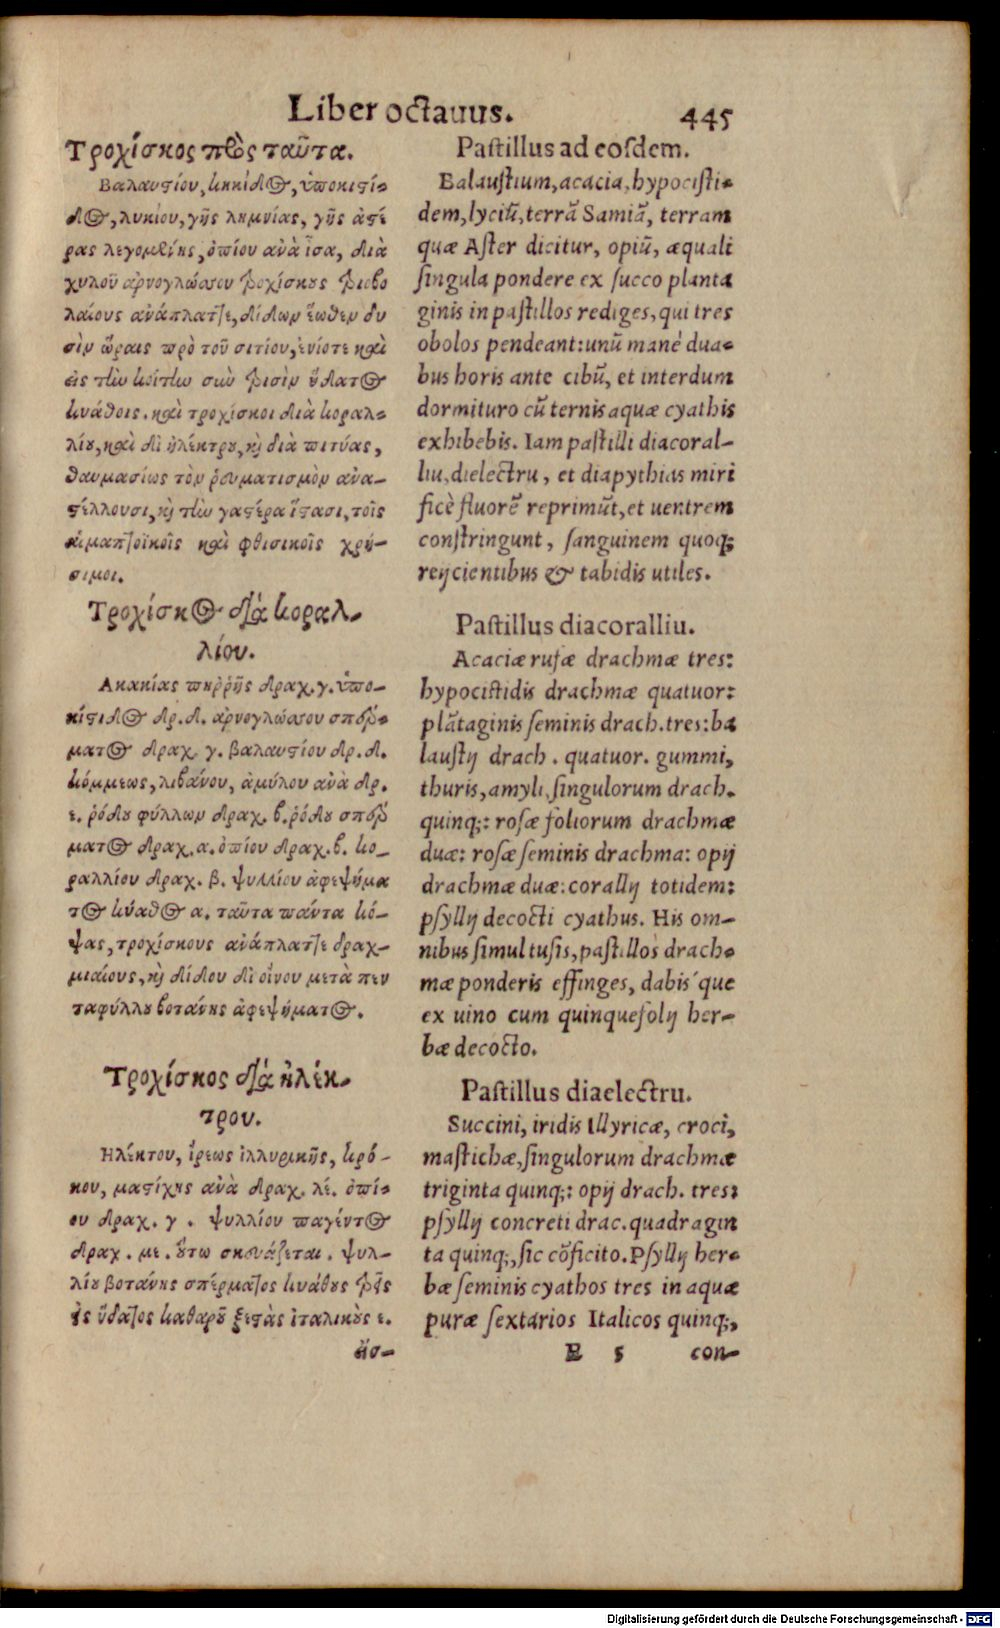 Liber octavus. 445
Τροχίσκος πρὸς ταῦτα.
Βαλαυστίου, κηκίδος, ὑποκιστί-
δος, λυκίου, γῆς λημνίας, γῆς ἀστέ
ρας λεγομένης, ὀπίου ἀνὰ ἶσα, διὰ
χυλοῦ ἀρνογλώσσου τροχίσκους τριοβο
λαίους ἀνάπλαττε, δίδων ἕωθεν δυ
σὶν ὥραις πρὸ τοῦ σιτίου, ἐνίοτε καὶ
εἰς τὴν κοίτην σὺν τρισὶν ὕδατος
κυάθοις. καὶ τροχίσκοι διὰ κοραλ-
λίου, καὶ δι ἠλέκτρου, καὶ διὰ πιτύας,
θαυμασίως τὸν ῥευματισμὸν ἀνα-
στέλλουσι, καὶ τὴν γαστέρα ἱστασι, τοῖς
αἱμαπτοϊκοῖς καὶ φθισικοῖς χρή-
σιμοι.
Τροχίσκος διὰ κοραλ-
λίου.
Ακακίας πηῤῥῆς δραχ. γ. ὑπο-
κιστίδος δρ. δ. ἀρνογλώσσου σπέρ-
ματος δραχ. γ. βαλαυστίου δρ. δ.
κόμμεως, λιβάνου, ἀμύλου ἀνὰ δρ.
ε. ῥόδου φύλλων δραχ. β. ῥόδου σπέρ
ματος δραχ. α. ὀπίου δραχ. β. κο-
ραλλίου δραχ. β. ψυλλίου ἀφεψήμα
τος κύαθος α. ταῦτα πάντα κό-
ψας, τροχίσκους ἀνάπλαττε δραχ-
μιαίους, καὶ δίδου δι οἴνου μετὰ πεν
ταφύλλου βοτάνης ἀφεψήματος.
Τροχίσκος διὰ ἠλέκ-
τρου.
Ηλέκτου, ἴρεως ἰλλυρικῆς, κρό-
κου, μαστίχης ἀνὰ δραχ. λε. ὀπί-
ου δραχ. γ. ψυλλίου παγέντος
δραχ. με. οὕτω σκευάζεται. ψυλ-
λίου βοτάνης σπέρματος κυάθους τρεῖς
εἰς ὕδατος καθαροῦ ξεστὰς ἰταλικοὺς ε.
ἕσ-
Pastillus ad eosdem.
Balaustium, acacia, hypocisti-
dem, lyciũ, terrã Samiã, terram
quæ Aster dicitur, opiũ, æquali
singula pondere ex succo planta
ginis in pastillos rediges, qui tres
obolos pendeant: unũ manè dua-
bus horis ante cibũ, et interdum
dormituro cũ ternis aquæ cyathis
exhibebis. Iam pastilli diacoral-
liu, dielectru, et diapythias miri
ficè fluorẽ reprimũt, et uentrem
constringunt, sanguinem quoq;
reijcientibus & tabidis utiles.
Pastillus diacoralliu.
Acaciæ rufæ drachmæ tres:
hypocistidis drachmæ quatuor:
plãtaginis seminis drach. tres: ba
laustij drach. quatuor. gummi,
thuris, amyli, singulorum drach.
quinq;: rosæ foliorum drachmæ
duæ: rosæ seminis drachma: opij
drachmæ duæ: corallij totidem:
psyllij decocti cyathus. His om-
nibus simul tusis, pastillos drach-
mæ ponderis effinges, dabis´que
ex uino cum quinquefolij her-
bæ decocto.
Pastillus diaelectru.
Succini, iridis Illyricæ, croci,
mastichæ, singulorum drachmæ
triginta quinq;: opij drach. tres:
psyllij concreti drac. quadragin
ta quinq;, sic cõficito. Psyllij her-
bæ seminis cyathos tres in aquæ
puræ sextarios Italicos quinq;,
E 5 con-
Digitalisierung gefördert durch die Deutsche Forschungsgemeinschaft - DFG